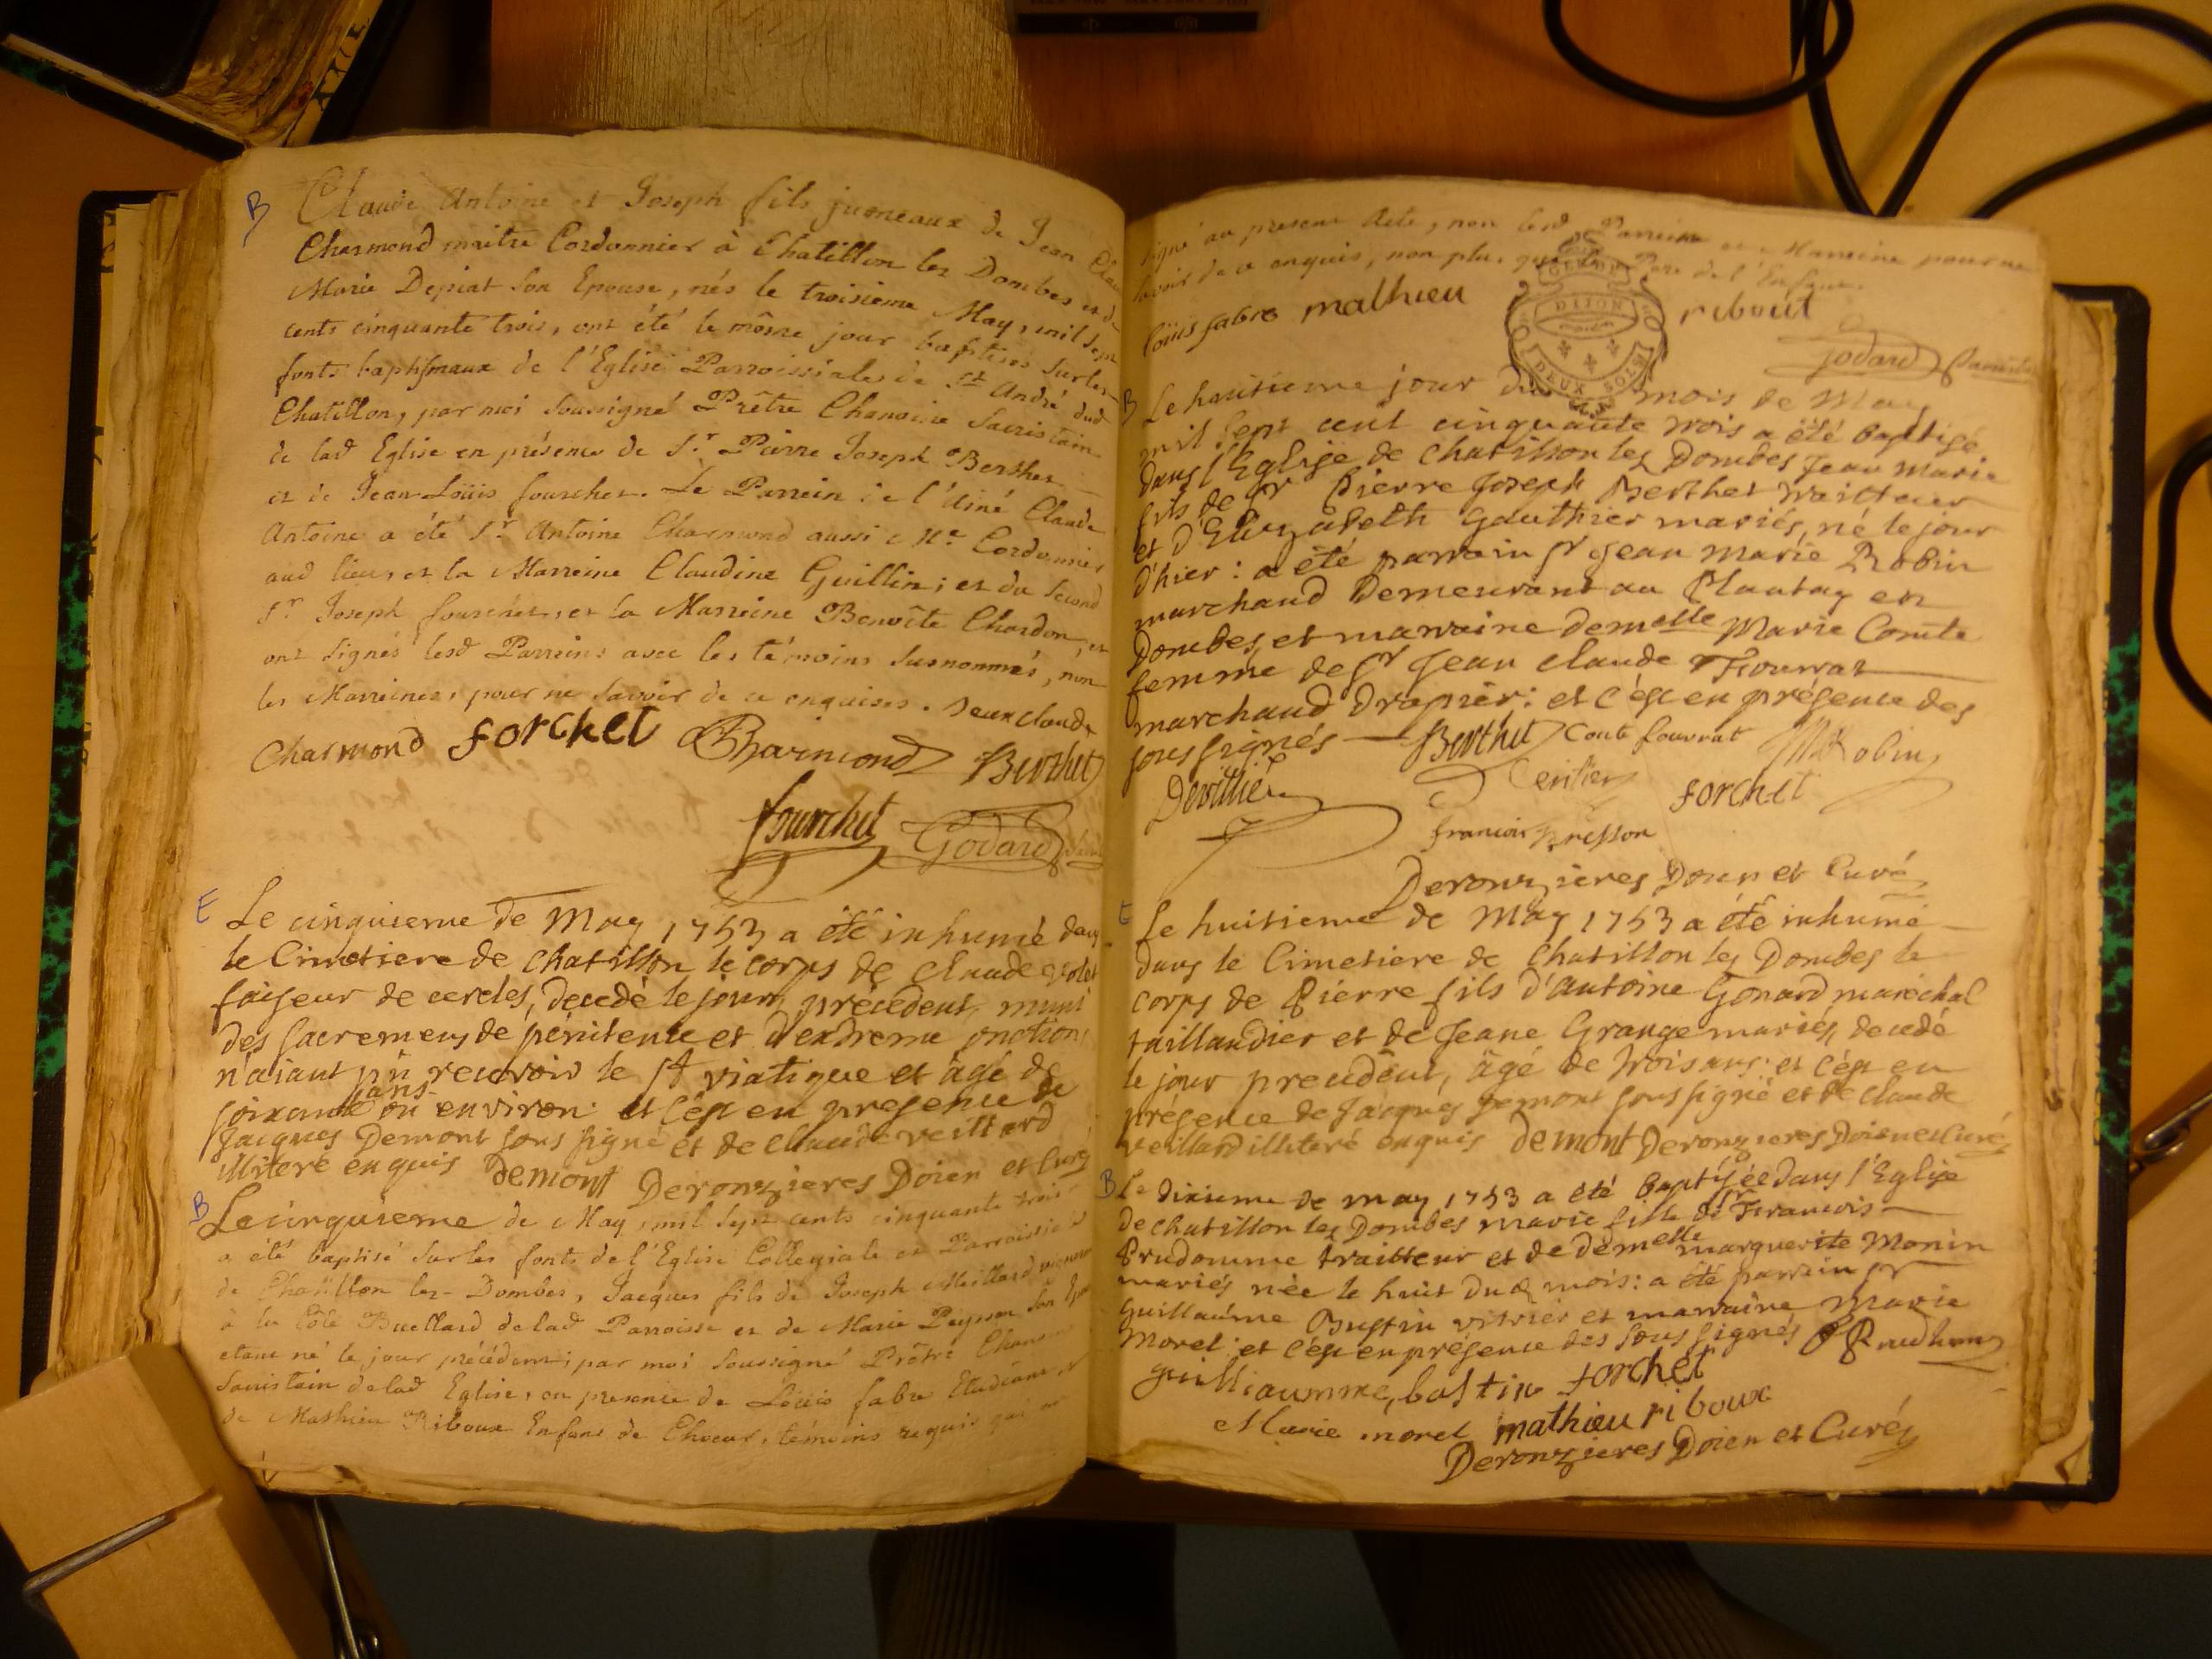 B Claude Antoine et Joseph fils jumeaux de Jean Clau
Charmond maitre Cordonnier à Chatillon les Dombes et de
Marie Depiat son Epouse, nés le troisieme May, mil sept
cents cinquante trois, ont été le même jour baptises sur les
fonts baptismaux de l'Eglise Parroissiale de St André dud
Chatillon, par moi soussigné Prêtre Chanoine Sacristain
de lad Eglise en présence de Sr Pierre Joseph Berthet
et de Jean Loüis fourchet. Le Parrein de l'Ainé Claude
Antoine a été Sr Antoine Charmond aussi Me Cordonnier
aud lieu, et la Marreine Claudine Guillin; et du second
Sr Joseph fourchet, et la Marreine Benoîte Chardon, et
ont signés lesd Parreins avec les témoins susnommés, non
les Marreines, pour ne savoir de ce enquises. Jean claude
Charmond forchet Charmond Berthet
fourchet Godard
E Le cinquieme de May 1753 a été inhumé dans
le Cimetiere de chatillon le corps de claude violet
faiseur de cercles, decedé le jour précédent, muni
des sacremens de pénitence et d'extreme onction
n'aiant pû recevoir le st viatique et âgé de
soixante ans ou environ: et c'est en presence de
Jacques Demont sous signé et de claude veillard
illiteré enquis demont Deronzieres Doien et Curé
B Le cinquieme de May, mil sept cents cinquante trois
a été baptisé sur les fonts de l'Eglise Collegiale et Parroissiale
de Chatillon les-Dombes, Jacques fils de Joseph Meillard vigneron
à la Côte Buellard de lad Parroisse et de Marie Peysson son Epouse
etant né le jour précédent; par moi soussigné Prêtre Chanoine
Sacristain de lad Eglise, en presence de Loüis fabre Etudiant et
de Mathieu Riboux Enfant de Choeur, témoins requis qui ont
signé au present Acte, non lesd Parrein et Marreine pour ne
savoir de ce enquis, non plus que Pere de l'Enfant.
loüis fabre mathieu ribout
Godard
GEN DE DIJON
DEUX SOLS
B Le huitieme jour du mois de May
mil sept cent cinquante trois a été baptisé
dans l'Eglise de chatillon les Dombes Jean Marie
fils de sr Pierre Joseph Berthet traitteur
et d'Elizabeth Gauthier mariés, né le jour
d'hier: a été parrain sr Jean Marie Robin
marchand Demeurant au Plantay en
Dombes, et marraine demelle Marie Comte
femme de sr Jean Claude Fourrat
marchand drapier: et c'est en présence des
sous signés Berthet Comte fouvrat JM Robin
Devillié forchet
francois bresson
Deronzieres Doien et Curé
E Le huitieme de May 1753 a été inhumé
dans le Cimetiere de Chatillon les Dombes le
corps de Pierre fils d'Antoine Gonard maréchal
taillandier et de Jeane Grange mariés, decedé
le jour precedent, âgé de trois ans: et c'est en
présence de Jacques Demont sous signé et de claude
veillard illiteré enquis demont Deronzieres Doien et Curé
B Le dixieme de may 1753 a été baptisée dans l'Eglise
de chatillon les Dombes marie fille de sr Francois
Prudomme traitteur et de demelle marguerite Monin
mariés née le huit dud mois: a été parrein sr
Guillaume Bustin vitrier et marraine Marie
Morel: et c'est en présence des sous signés Prudhom
guilliaumme, bastin forchet
Marie morel mathieu riboux
Deronzieres Doien et Curé